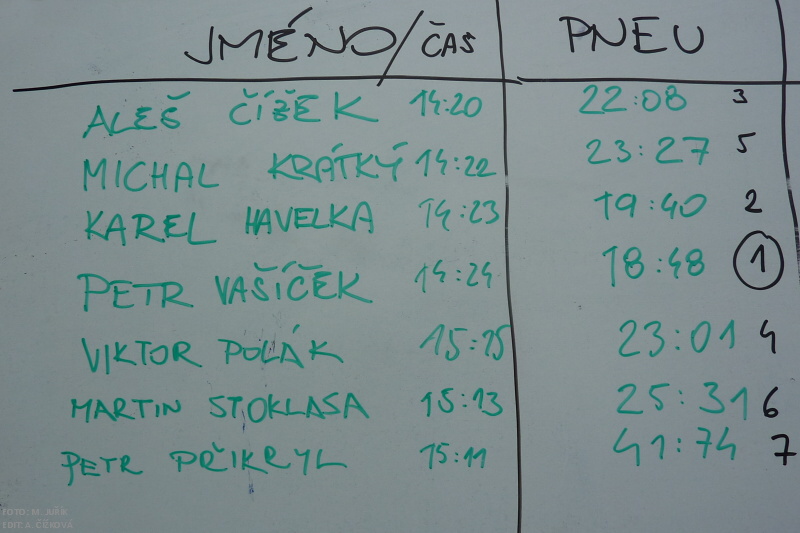 JMÉNO/ČAS PNEU
ALEŠ ČÍŽEK 14:20 22:08 3
MICHAL KRÁTKÝ 14:22 23:27 5
KAREL HAVELKA 14:23 19:40 2
PETR VAŠÍČEK 14:24 18:48 1
VIKTOR POLÁK 15:15 23:01 4
MARTIN STOKLASA 15:13 25:31 6
PETR PŘIKRYL 15:11 41:74 7
FOTO: M. JUŘÍK